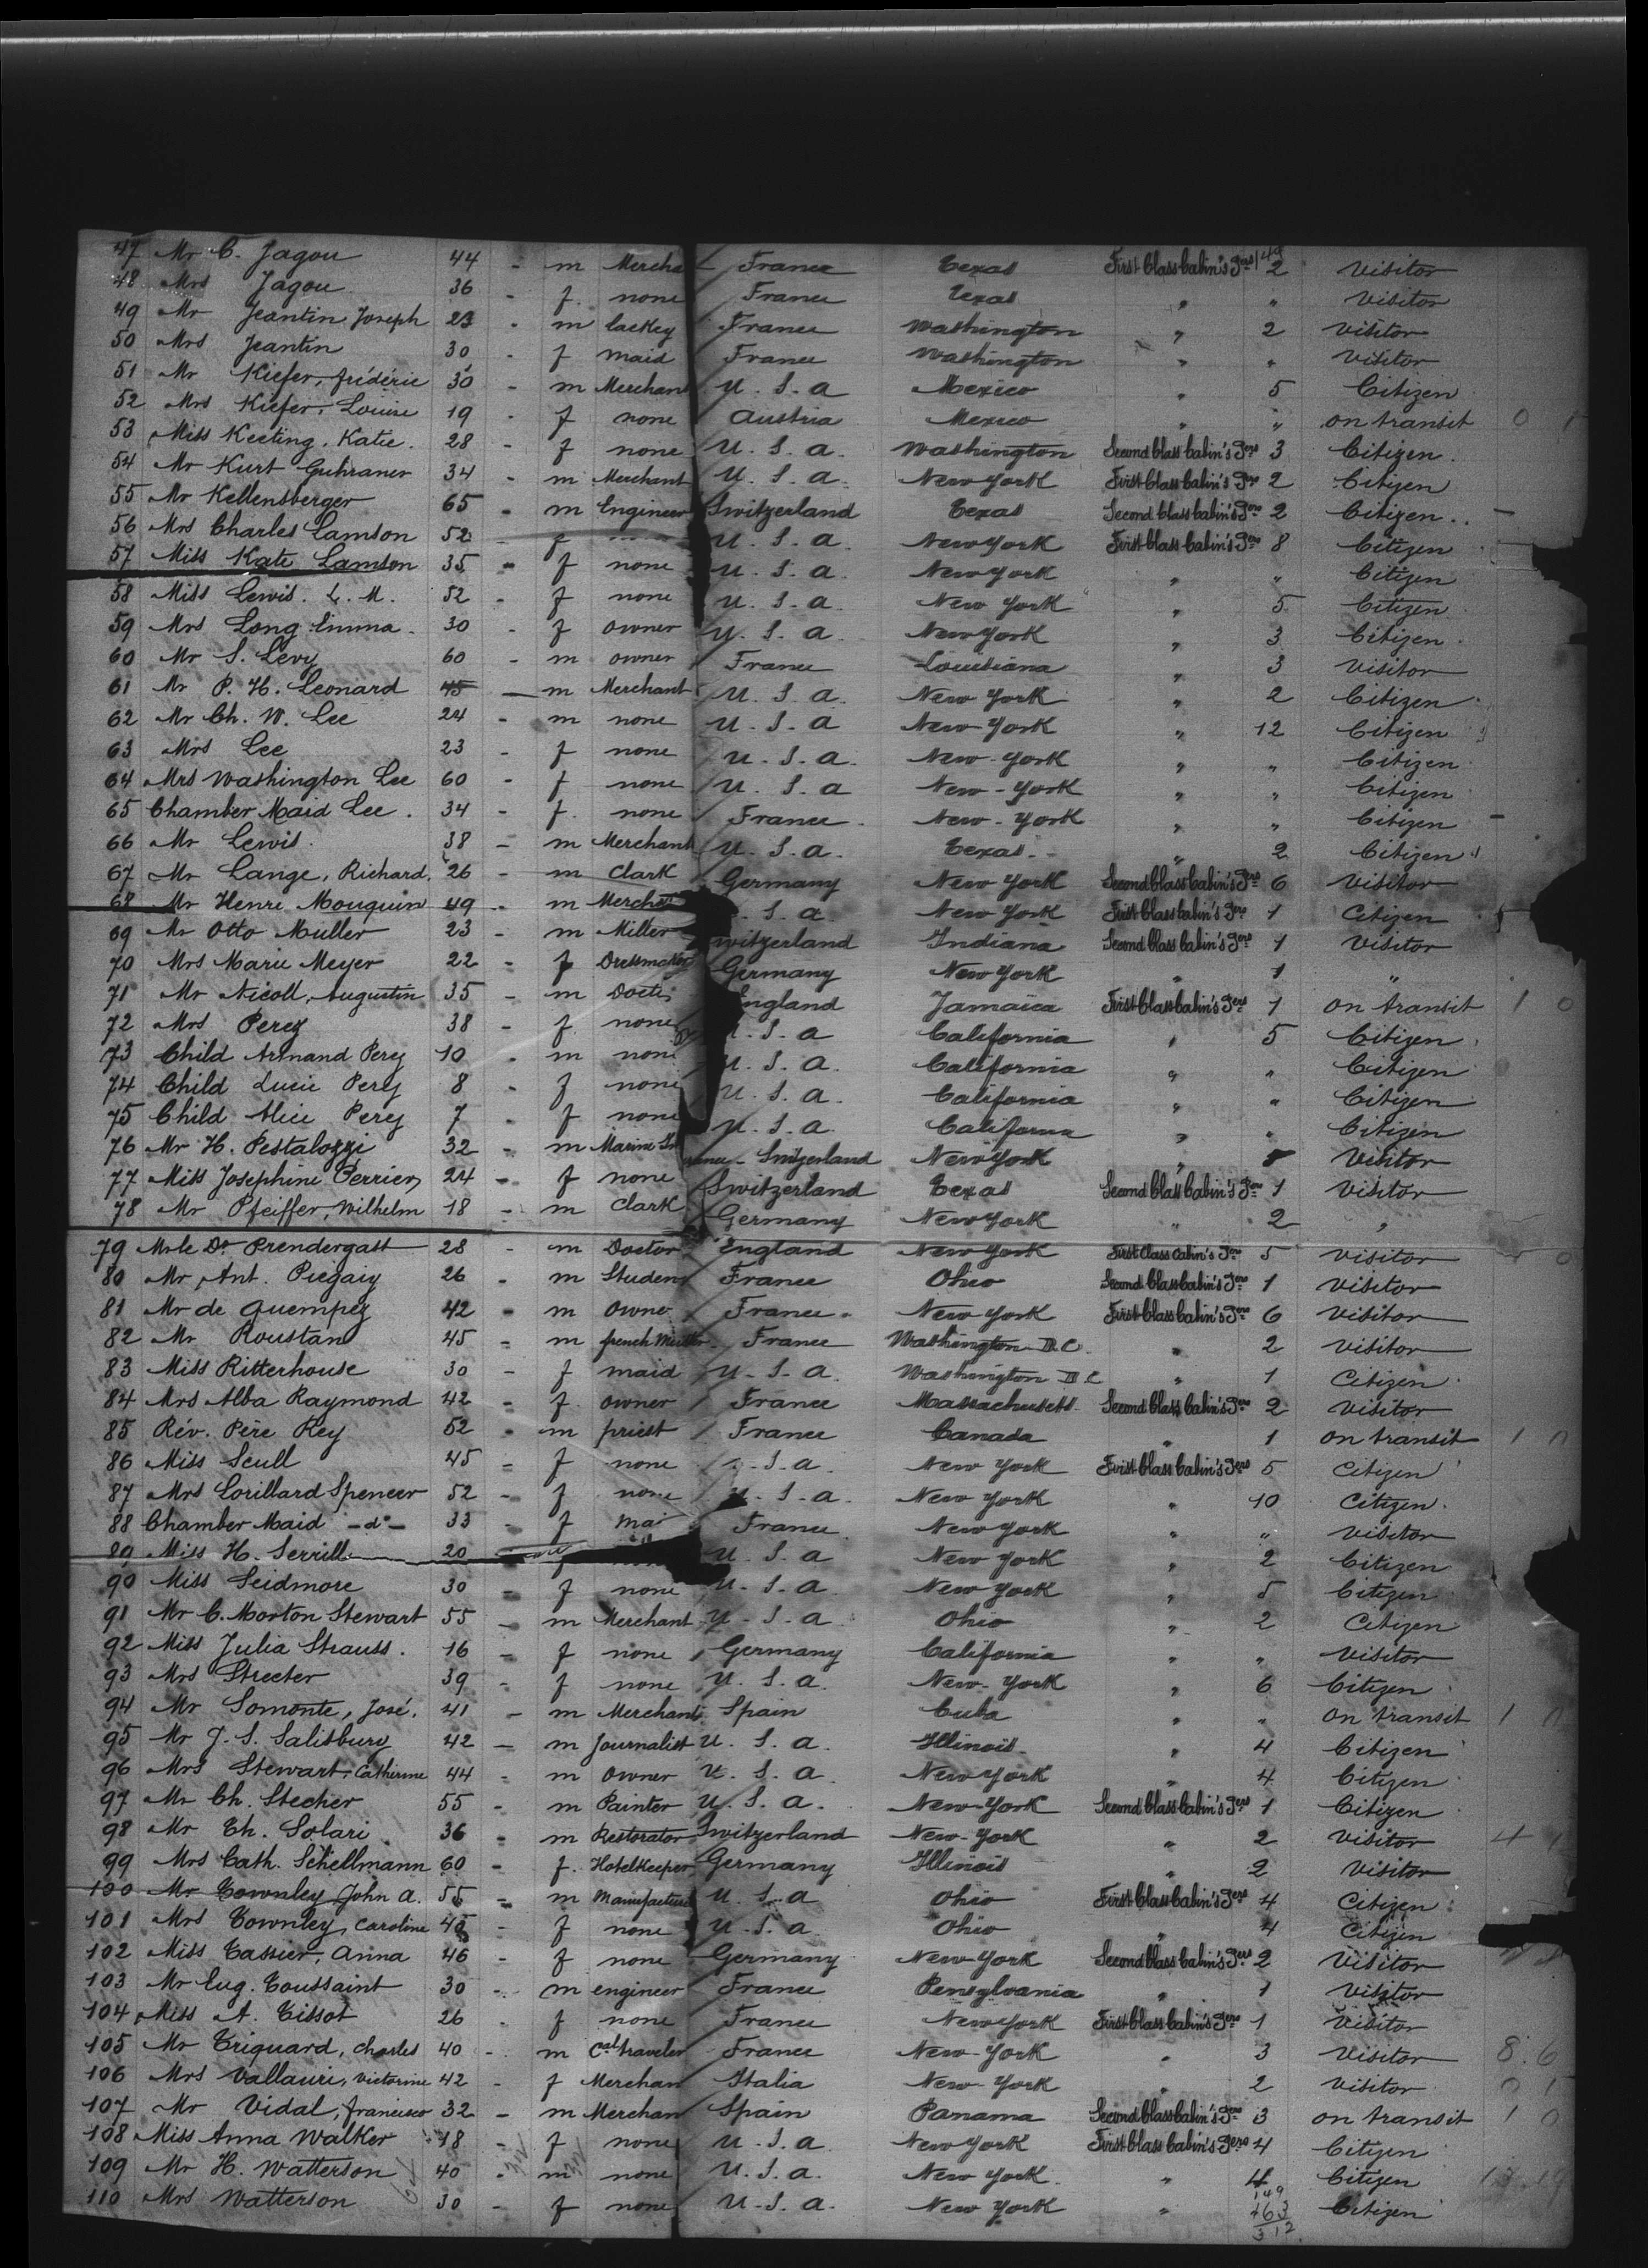 47 Mr C. Jagou 44 - m Mercha France Texas First Class Cabin's Pers 2 Visitor
48 Mrs Jagou 36 - f. none France Texas " " Visitor
49 Mr Jeantin Joseph 23 - m lackey France Washington " 2 Visitor
50 Mrs Jeantin 30 - f maid France Washington " " Visitor
51 Mr Kiefer, frédéric 30 - m Merchant U. S. a Mexico " 5 Citizen
52 Mrs Kiefer, Louise 19 - f none Austria Mexico " " on transit 0 1
53 Miss Keeting, Katie. 28 - f none U. S. a. Washington Second Class Cabin's Pers 3 Citizen.
54 Mr Kurt Guhraner 34 - m Merchant U. S. a. New York First Class Cabin's Pers 2 Citizen
55 Mr Kellensberger 65 - m Engineer Switzerland Texas Second Class Cabin's Pers 2 Citizen..
56 Mrs Charles Lamson 52 - f U. S. a. New York First Class Cabin's Pers 8 Citizen
57 Miss Kate Lamson 35 - f none U. S. a. New York " " Citizen
58 Miss Lewis. L. M. 52 - f none U. S. a. New York " 5 Citizen
59 Mrs Long Emma. 30 - f owner U. S. a. New York " 3 Citizen.
60 Mr S. Levy 60 - m owner France Louisiana " 3 Visitor
61 Mr P. H. Leonard 45 - m Merchant U. S. a. New York " 2 Citizen
62 Mr Ch. W. Lee 24 - m none U. S. a New-York " 12 Citizen
63 Mrs Lee 23 - f none U. S. a. New-York " " Citizen
64 Mrs Washington Lee 60 - f none U. S. a New-York " " Citizen
65 Chamber Maid Lee. 34 - f. none France. New-York " " Citizen
66 Mr Lewis. 38 - m Merchant U. S. a. Texas. " 2 Citizen
67 Mr Lange, Richard. 26 - m Clark Germany New York Second Class Cabin's Pers 6 Visitor
68 Mr Henri Mouquin 49 - m Mercha S. a. New York First Class Cabin's Pers 1 Citizen
69 Mr Otto Muller 23 - m Miller witzerland Indiana Second Class Cabin's Pers 1 Visitor
70 Mrs Marie Meyer 22 - f Dressmaker Germany New York " 1 "
71 Mr Nicoll, Augustin 35 - m Docto England Jamaïca First Class Cabin's Pers 1 on transit 1 0
72 Mrs Perey 38 - f. none S. a California " 5 Citizen
73 Child Armand Perey 10 - m none U. S. a. California " " Citizen
74 Child Lucie Perey 8 - f none U. S. a. California " " Citizen
75 Child Alice Perey 7 - f none U. S. a. California " " Citizen
76 Mr H. Pestalozzi 32 - m Marine In rance - Switzerland New York " Visitor
77 Miss Josephine Perrier 24 - f none Switzerland Texas Second Class Cabin's Pers 1 Visitor
78 Mr Pfeiffer, Wilhelm 18 - m Clark Germany New York " 2 "
79 Mr le Dr Prendergast 28 - m Doctor England New York First Class Cabin's Pers 5 Visitor 0
80 Mr Ant. Piegaiy 26 - m Studen France Ohio Second Class Cabin's Pers 1 Visitor
81 Mr de Quempez 42 - m Owner France New York First Class Cabin's Pers 6 Visitor
82 Mr Roustan 45 - m french France Washington D.C. " 2 Visitor
83 Miss Ritterhouse 30 - f maid U. S. a. Washington D C " 1 Citizen
84 Mrs Alba Raymond 42 - f. owner France Massachusetts Second Class Cabin's Pers 2 Visitor
85 Rév. Père Rey 52 - m priest France Canada " 1 on transit 1 0
86 Miss Scull 45 - f none S. a. New York First Class Cabin's Pers 5 Citizen
87 Mrs Lorillard Spencer 52 - f none U. S. a. New York " 10 Citizen.
88 Chamber Maid -d°- 33 - f mai France New York " " Visitor
89 Miss H. Serrill 20 U. S. a New York " 2 Citizen
90 Miss Seidmore 30 - f none U. S. a New York " 5 Citizen
91 Mr C. Morton Stewart 55 - m Merchant U. S. a Ohio " 2 Citizen
92 Miss Julia Strauss. 16 - f none Germany California " " Visitor
93 Mrs Streeter 39 - f none U. S. a. New-York " 6 Citizen
94 Mr Somonte, José. 41 - m Merchant Spain Cuba " " on transit 1 0
95 Mr J. S. Salisbury 42 - m Journalist U. S. a. Illinois. " 4 Citizen
96 Mrs Stewart, Catherine 44 - m owner U. S. a. New York " 4 Citizen
97 Mr Ch. Stecher 55 - m Painter U. S. a. New-York Second Class Cabin's Pers 1 Citizen
98 Mr Th. Solari 36 - m Restorator Switzerland New-York " 2 Visitor 4 1
99 Mrs Cath. Schellmann 60 - f. Hotelkeeper Germany Illinois " 2 Visitor
100 Mr Townley John a. 55 - m Manufacture U. S. a Ohio First Class Cabin's Pers 4 Citizen
101 Mrs Townley, Caroline 45 - f none U. S. a Ohio " 4 Citizen
102 Miss Tassier, Anna 46 - f none Germany New-York Second Class Cabin's Pers 2 Visitor
103 Mr Eug. Toussaint 30 - m engineer France Pensylvania " 1 Visitor
104 Miss A. Tissot 26 - f none France New York First Class Cabin's Pers 1 Visitor
105 Mr Triquard, Charles 40 - m Cal traveler France New-York " 3 Visitor 8. 6
106 Mrs Vallauri, Victorine 42 - f Merchan Italia New-York " 2 Visitor
107 Mr Vidal, francisco 32 - m Merchan Spain Panama Second Class Cabin's Pers 3 on transit 1 0
108 Miss Anna Walker 18 - f none U. S. a New York First Class Cabin's Pers 4 Citizen
109 Mr H. Watterson 40 - m none U. S. a. New York. " 4 Citizen
110 Mrs Watterson 30 - f none U. S. a. New York " Citizen
149
463
312